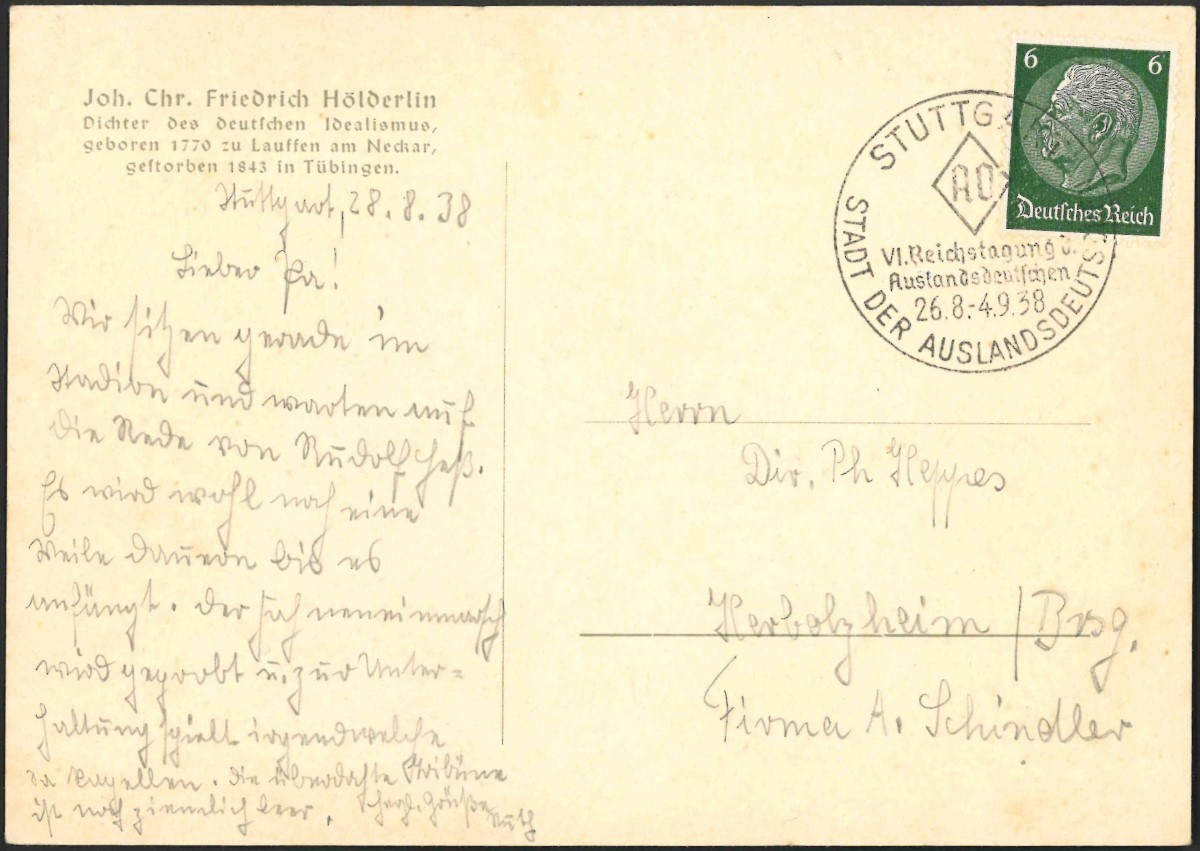 Joh. Chr. Friedrich Hölderlin
Dichter des deutschen Idealismus,
geboren 1770 zu Lauffen am Neckar,
gestorben 1843 in Tübingen.
Stuttgart, 28.8.38
Lieber Pa!
Wir sitzen gerade im
Stadion und warten auf
die Rede von Rudolf Heß.
Es wird wohl noch eine
Weile dauern bis es
anfängt. Der Fahneneinmarsch
wird geprobt u. zur Unter=
haltung spielt irgendwelche
Kapellen. Die überdachte Tribüne
ist noch ziemlich leer. Herzl. Grüße
Ruth
6 6
Deutsches Reich
STUTTGA
AO
VI. Reichstagung d.
Auslandsdeutschen
26.8.-4.9.38
STADT DER AUSLANDSDEUTS
Herrn
Dir. Ph Heppes
Herbolzheim / Brsg.
Firma A. Schindler